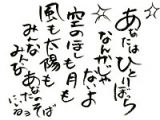 あなたはひとりぼっち
なんかじゃ
ないよ
空のほしも月も
風も太陽も
みんな
みんな
あなたのそば
にいる